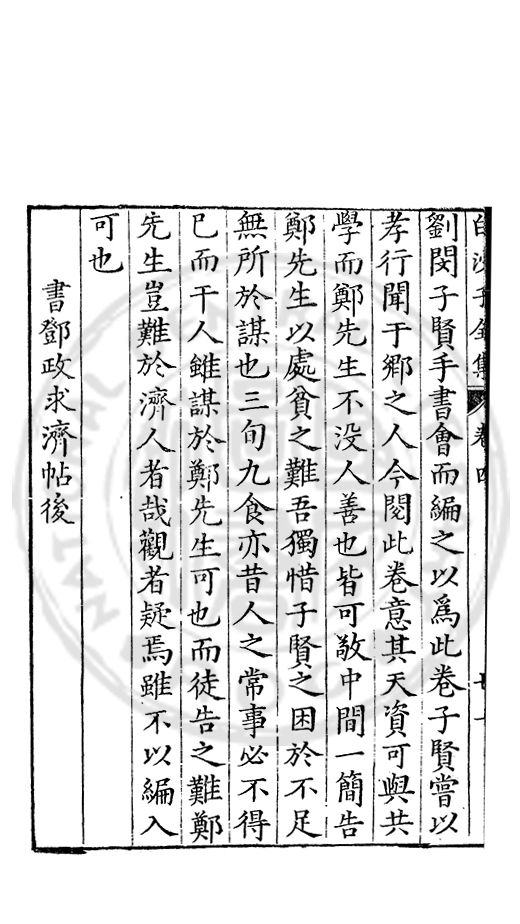 白沙子全集 卷四
劉閔子賢手書會而編之以爲此卷子賢嘗以
孝行聞于鄉之人今閱此卷意其天資可與共
學而鄭先生不没人善也皆可敬中間一簡告
鄭先生以處貧之難吾獨惜子賢之困於不足
無所於謀也三旬九食亦昔人之常事必不得
已而干人雖謀於鄭先生可也而徒告之難鄭
先生豈難於濟人者哉觀者疑焉雖不以編入
可也
書鄧政求濟帖後